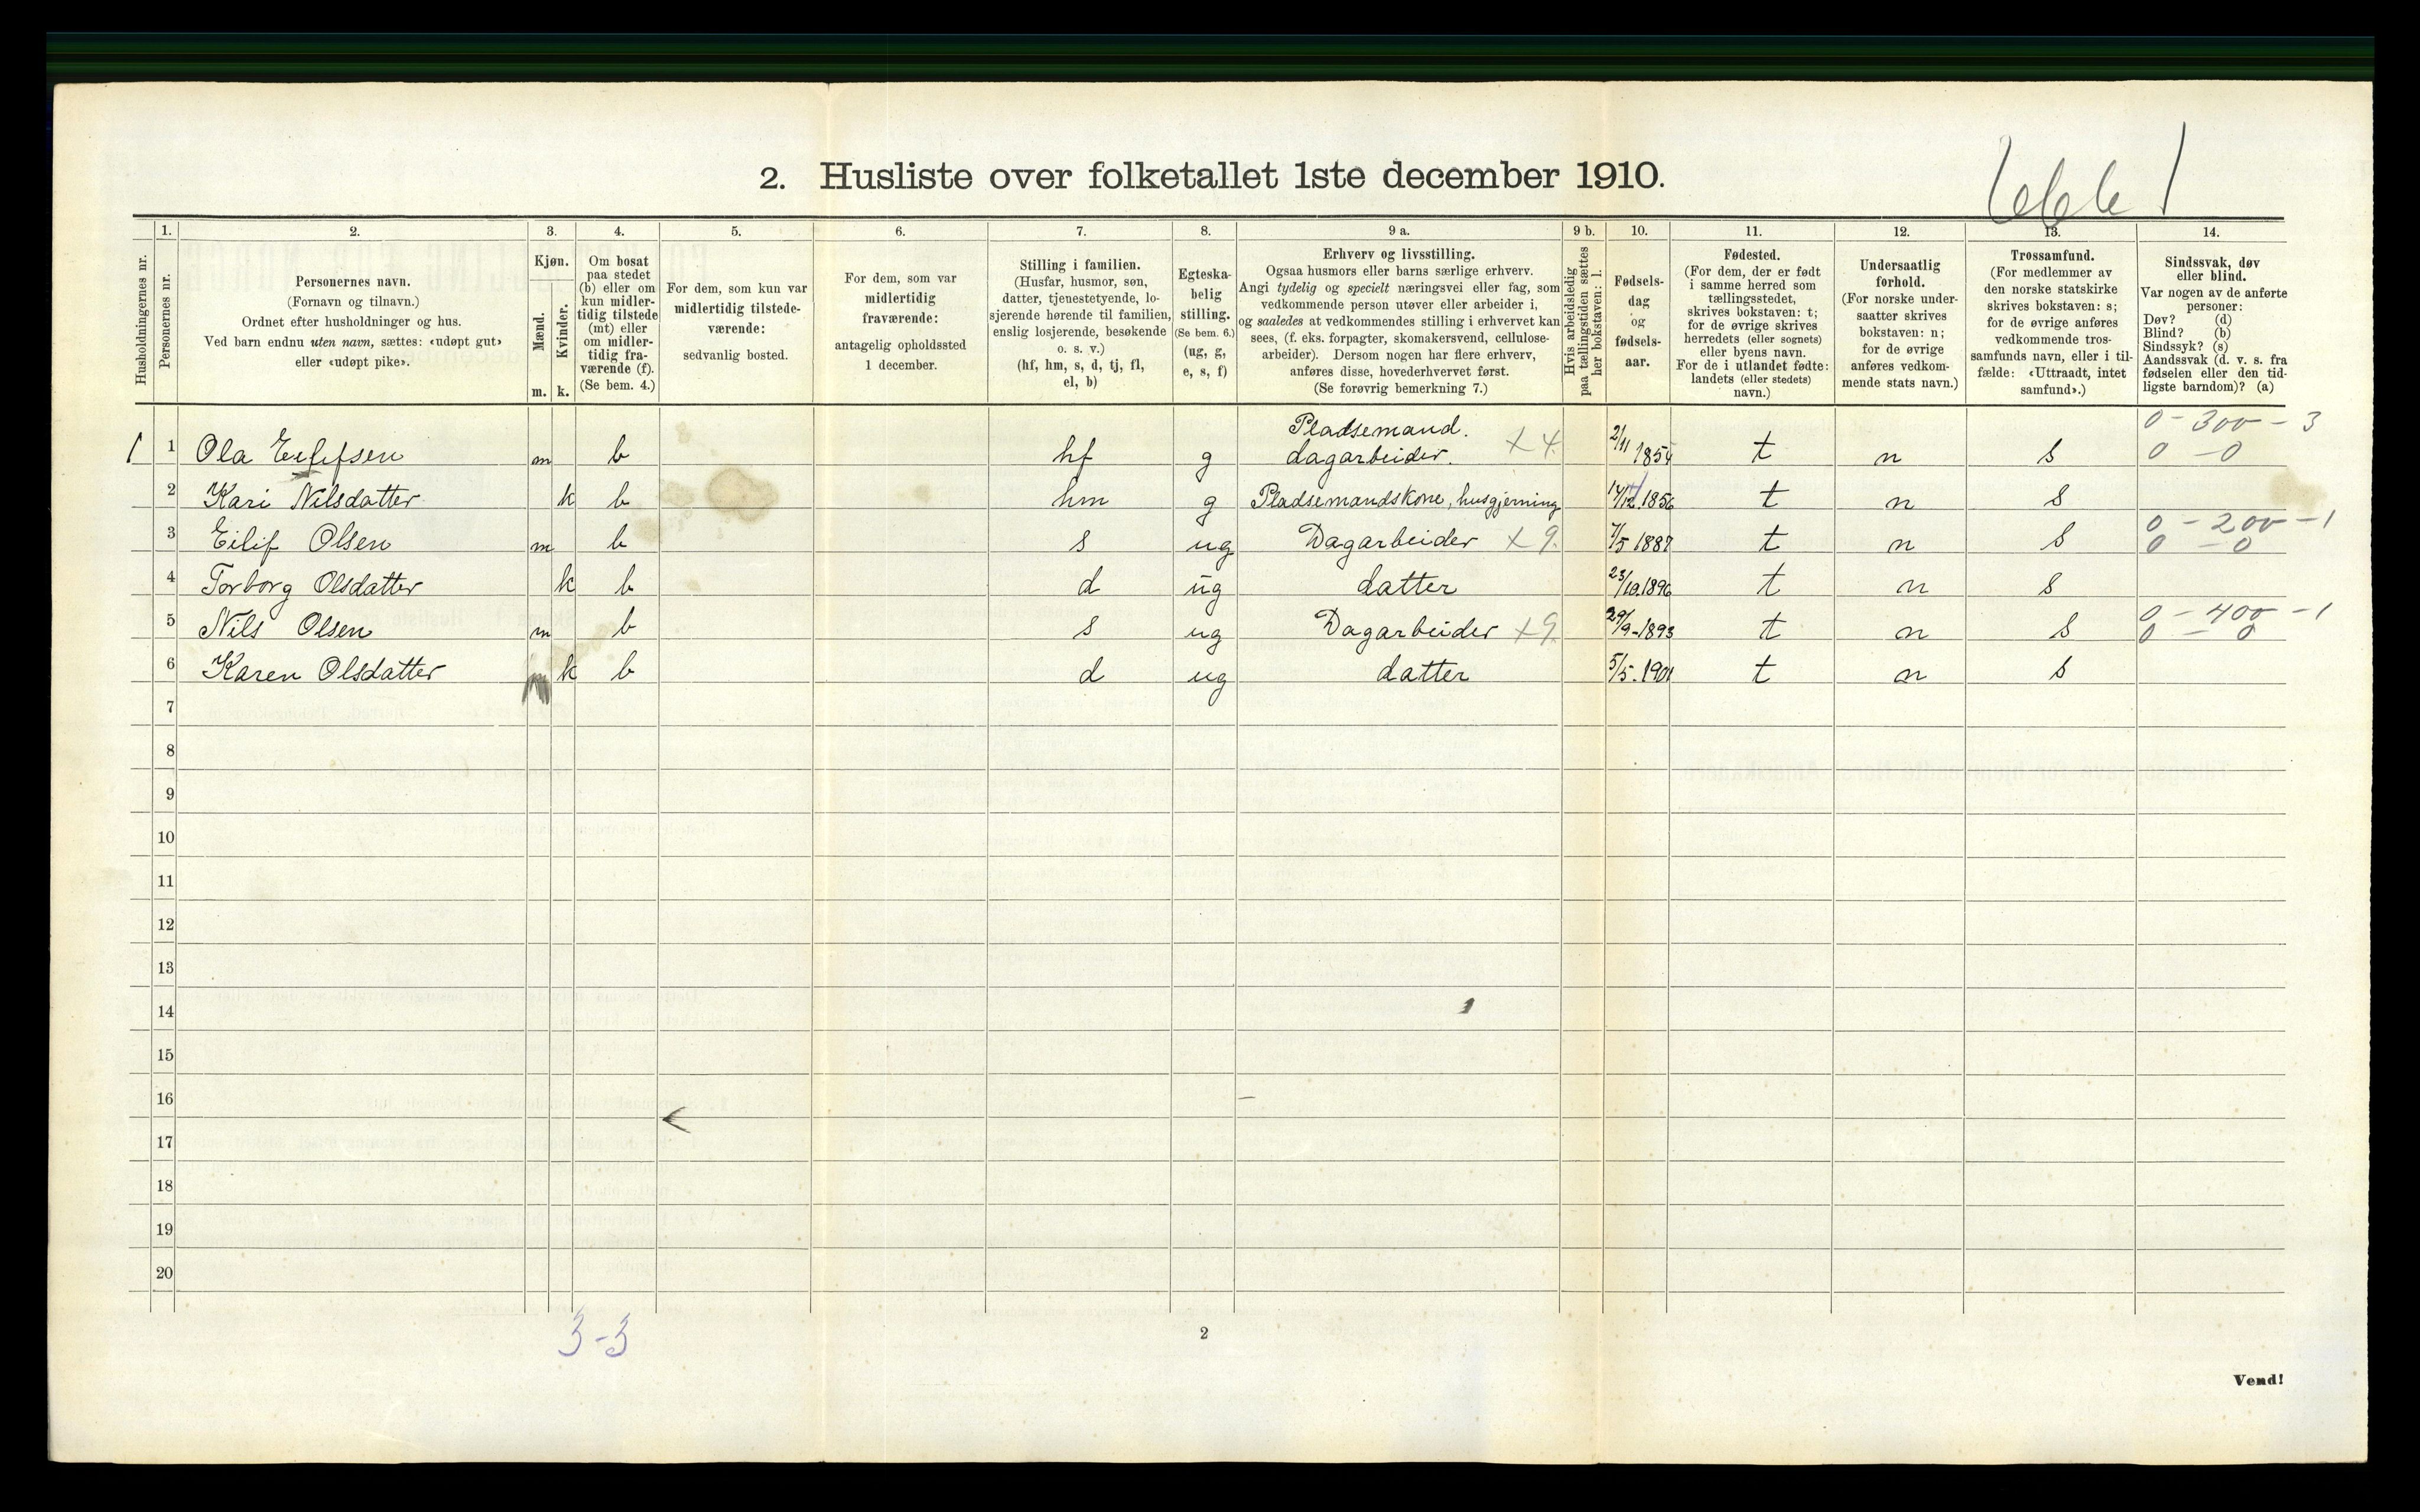 2. Husliste over folketallet 1ste december 1910.
1. 2. 3. 4. 5. 6. 7. 8. 9 a. 9 b. 10. 11. 12. 13. 14.
Husholdningernes nr.
Personernes nr.
Personernes navn.
(Fornavn og tilnavn.)
Ordnet efter husholdninger og hus.
Ved barn endnu uten navn, sættes: «udøpt gut»
eller «udøpt pike».
Kjøn.
Mænd.
Kvinder.
m. k.
Om bosat
paa stedet
(b) eller om
kun midler-
tidig tilstede
(mt) eller
om midler-
tidig fra-
værende (f).
(Se bem. 4.)
For dem, som kun var
midlertidig tilstede-
værende:
sedvanlig bosted.
For dem, som var
midlertidig
fraværende:
antagelig opholdssted
1 december.
Stilling i familien.
(Husfar, husmor, søn,
datter, tjenestetyende, lo-
sjerende hørende til familien,
enslig losjerende, besøkende
o. s. v.)
(hf, hm, s, d, tj, fl,
el, b)
Egteska-
belig
stilling.
(Se bem. 6.)
(ug, g,
e, s, f)
Erhverv og livsstilling.
Ogsaa husmors eller barns særlige erhverv.
Angi tydelig og specielt næringsvei eller fag, som
vedkommende person utøver eller arbeider i,
og saaledes at vedkommendes stilling i erhvervet kan
sees, (f. eks. forpagter, skomakersvend, cellulose-
arbeider). Dersom nogen har flere erhverv,
anføres disse, hovederhvervet først.
(Se forøvrig bemerkning 7.)
Hvis arbeidsledig
paa tællingstiden sættes
her bokstaven: l.
Fødsels-
dag
og
fødsels-
aar.
Fødested.
(For dem, der er født
i samme herred som
tællingsstedet,
skrives bokstaven: t;
for de øvrige skrives
herredets (eller sognets)
eller byens navn.
For de i utlandet fødte:
landets (eller stedets)
navn.)
Undersaatlig
forhold.
(For norske under-
saatter skrives
bokstaven: n;
for de øvrige
anføres vedkom-
mende stats navn.)
Trossamfund.
(For medlemmer av
den norske statskirke
skrives bokstaven: s;
for de øvrige anføres
vedkommende tros-
samfunds navn, eller i til-
fælde: «Uttraadt, intet
samfund».)
Sindssvak, døv
eller blind.
Var nogen av de anførte
personer:
Døv? (d)
Blind? (b)
Sindssyk? (s)
Aandssvak (d. v. s. fra
fødselen eller den tid-
ligste barndom)? (a)
Pladsemand. 0 - 300 - 3
1 1 Ola Eilifsen m b hf g dagarbeider. x 4. 2/11 1854 t n s 0 - 0
2 Kari Nilsdatter k b hm g Pladsemandskone, husgjerning 14/12.1856 t n s
0 - 200 - 1
3 Eilif Olsen m b s ug Dagarbeider x 9. 7/5 1887 t n s 0 - 0
4 Torborg Olsdatter k b d ug datter 23/10.1896 t n s
0 - 400 - 1
5 Nils Olsen m b s ug Dagarbeider x 9. 29/9-1893 t n s 0 - 0
6 Karen Olsdatter m k b d ug datter 5/5.1901 t n s
7
8
9
10
11
12
13
14
15
16
17
18
19
20
3-3
2
Vend!